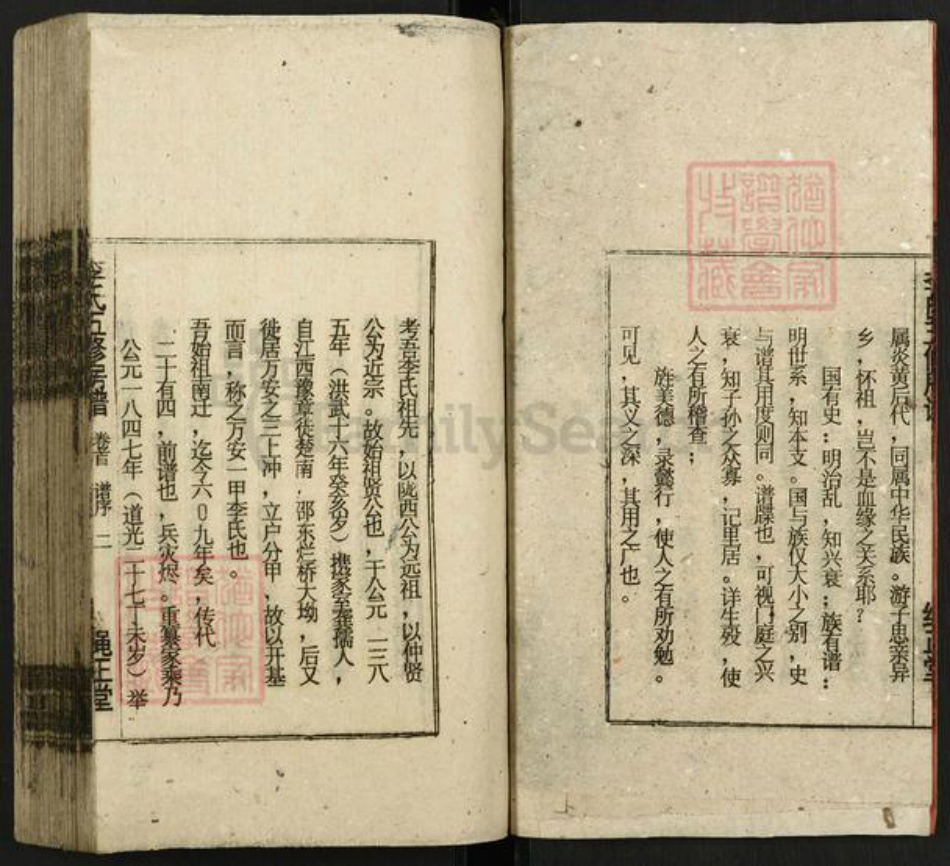 属炎黄后代，同属中华民族。游子思亲异
乡，怀祖，岂不是血缘之关系耶？
国有史：明治乱，知兴衰；族有谱：
明世系，知本支。国与族仅大小之别，史
与谱其用度则同。谱牒也，可视门庭之兴
衰，知子孙之众寡，记里居。详生殁，使
人之有所稽查；
旌美德，录懿行，使人之有所劝勉。
可见，其义之深，其用之广也。
考吾李氏祖先，以陇西公为远祖，以仲贤
公为近宗。故始祖贤公也，于公元一三八
五年（洪武十六年癸亥岁）携家室龚孺人，
自江西豫章徒楚南．邵东烂桥大坳，后又
徙居万安之三上冲，立户分甲，故以开基
而言，称之万安一甲李氏也。
吾始祖南迁，迄今六0九年矣，传代
二十有四，前谱也，兵灾烬。重纂家乘乃
公元一八四七年（道光二十七丁未岁）举
李氏五修房谱 卷首 谱序 二 绳正堂
FamilySe